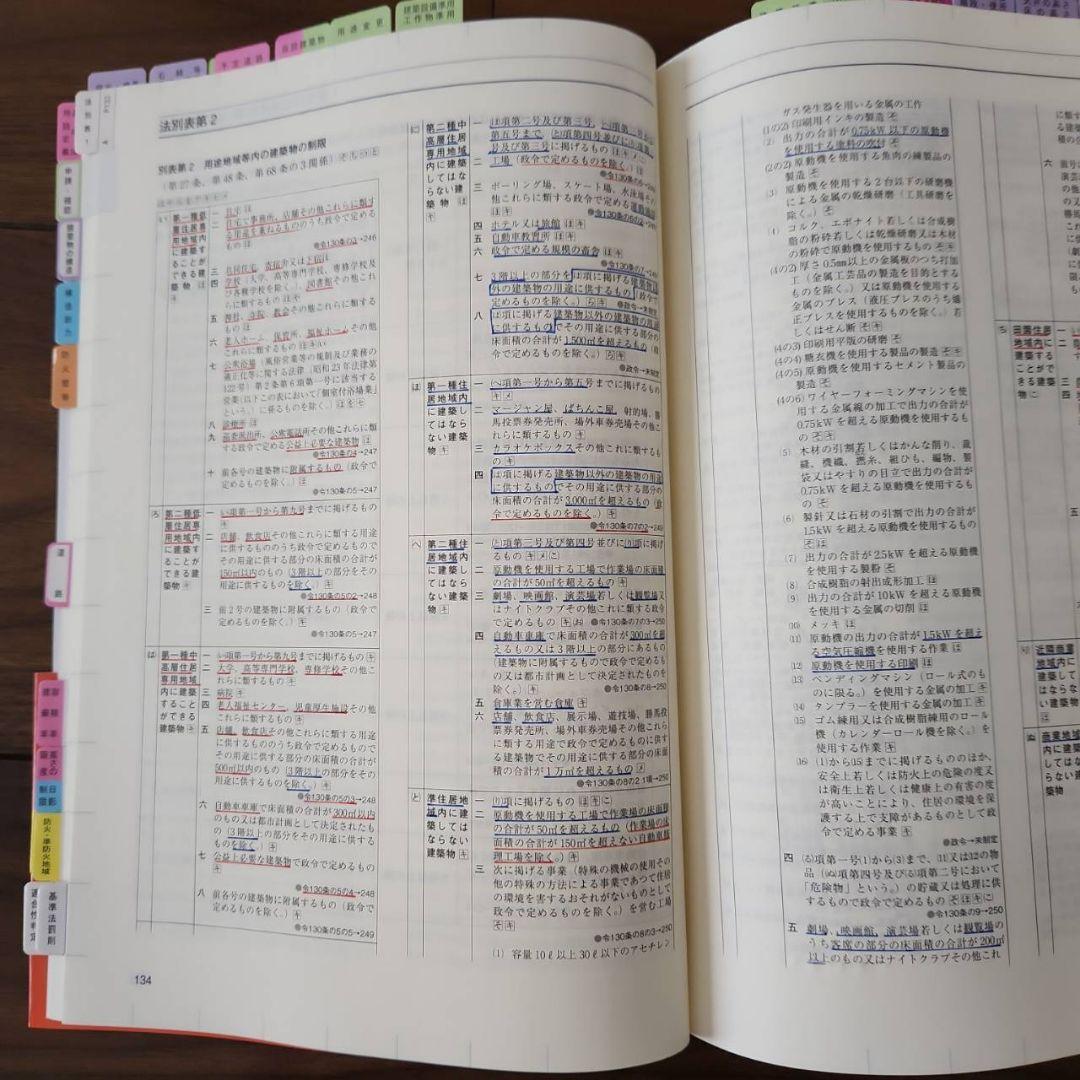 建築設備準用
工作物準用
用途変更
法別表第2
別表第2 用途地域等内の建築物の制限
(第27条、第48条、第68条の3関係)
第一種低
層住居専
用地域内
に建築す
ることが
できる建
築物
●令130条の3→246
共同住宅、寄宿舎又は下宿
学校(大学、高等専門学校、専修学校及
び各種学校を除く。)、図書館その他これ
らに類するもの
五 神社、寺院、教会その他これらに類する
もの
六 老人ホーム、保育所、福祉ホームその他
これらに類するもの
七 公衆浴場(風俗営業等の規制及び業務の
適正化等に関する法律(昭和23年法律第
122号)第2条第6項第一号に該当する
営業(以下この表において「個室付浴場業」
という。)に係るものを除く。)
八 診療所
九 巡査派出所、公衆電話所その他これらに類
する政令で定める公益上必要な建築物
●令130条の4→247
十 前各号の建築物に附属するもの(政令で
定めるものを除く。)
●令130条の5→247
ろ
第二種低
層住居専
用地域内
に建築す
ることが
できる建
築物
一 い項第一号から第九号までに掲げるもの
二 店舗、飲食店その他これらに類する用途
に供するもののうち政令で定めるもので
その用途に供する部分の床面積の合計が
150㎡以内のもの(3階以上の部分をその
用途に供するものを除く。)
●令130条の5の2→248
三 前2号の建築物に附属するもの(政令で
定めるものを除く。)
●令130条の5→247
は
第一種中
高層住居
専用地域
内に建築
すること
ができる
建築物
一 い項第一号から第九号までに掲げるもの
二 大学、高等専門学校、専修学校その他こ
れらに類するもの
三 病院
四 老人福祉センター、児童厚生施設その他
これらに類するもの
五 店舗、飲食店その他これらに類する用途
に供するもののうち政令で定めるもので
その用途に供する部分の床面積の合計が
500㎡以内のもの(3階以上の部分をその
用途に供するものを除く。)
●令130条の5の3→248
六 自動車車庫で床面積の合計が300㎡以内
のもの又は都市計画として決定されたも
の(3階以上の部分をその用途に供する
ものを除く。)
七 公益上必要な建築物で政令で定めるもの
●令130条の5の4→248
八 前各号の建築物に附属するもの(政令で
定めるものを除く。)
●令130条の5の5→249
134
に
第二種中
高層住居
専用地域
内に建築
してはな
らない建
築物
二 工場(政令で定めるものを除く。)
●令130条の6→249
三 ボーリング場、スケート場、水泳場その
他これらに類する政令で定める運動施設
四 ホテル又は旅館
五 自動車教習所
六 政令で定める規模の畜舎
●令130条の7→249
七 3階以上の部分をは項に掲げる建築物以
外の建築物の用途に供するもの(政令で
定めるものを除く。)
●政令→未制定
八 は項に掲げる建築物以外の建築物の用途
に供するものでその用途に供する部分の
床面積の合計が1,500㎡を超えるもの(政
令で定めるものを除く。)
●政令→未制定
ほ
第一種住
居地域内
に建築し
てはなら
ない建築
物
一 へ項第一号から第五号までに掲げるもの
二 マージャン屋、ぱちんこ屋、射的場、勝
馬投票券発売所、場外車券売場その他こ
れらに類するもの
三 カラオケボックスその他これに類するも
の
四 は項に掲げる建築物以外の建築物の用途
に供するものでその用途に供する部分の
床面積の合計が3,000㎡を超えるもの(政
令で定めるものを除く。)
●令130条の7の2→249
へ
第二種住
居地域内
に建築し
てはなら
ない建築
物
一 と項第三号及び第四号並びにり項に掲げ
るもの
二 原動機を使用する工場で作業場の床面積
の合計が50㎡を超えるもの
三 劇場、映画館、演芸場若しくは観覧場又
はナイトクラブその他これに類する政令
で定めるもの ●令130条の7の3→250
四 自動車車庫で床面積の合計が300㎡を超
えるもの又は3階以上の部分にあるもの
(建築物に附属するもので政令で定めるも
の又は都市計画として決定されたものを
除く。) ●令130条の8→250
五 倉庫業を営む倉庫
六 店舗、飲食店、展示場、遊技場、勝馬投
票券発売所、場外車券売場その他これら
に類する用途で政令で定めるものに供す
る建築物でその用途に供する部分の床面
積の合計が1万㎡を超えるもの
●令130条の8の2.1項→250
と
準住居地
域内に建
築しては
ならない
建築物
一 り項に掲げるもの
二 原動機を使用する工場で作業場の床面積
の合計が50㎡を超えるもの(作業場の床
面積の合計が150㎡を超えない自動車修
理工場を除く。)
三 次に掲げる事業(特殊の機械の使用その
他の特殊の方法による事業であつて住居
の環境を害するおそれがないものとして
政令で定めるものを除く。)を営む工場
●令130条の8の3→250
(1) 容量10ℓ以上30ℓ以下のアセチレン
ガス発生器を用いる金属の工作
(1の2) 印刷用インキの製造
(2) 出力の合計が0.75kW以下の原動機
を使用する塗料の吹付
(2の2) 原動機を使用する魚肉の練製品の
製造
(3) 原動機を使用する2台以下の研磨機
による金属の乾燥研磨(工具研磨を
除く。)
(4) コルク、エボナイト若しくは合成樹
脂の粉砕若しくは乾燥研磨又は木材
の粉砕で原動機を使用するもの
(4の2) 厚さ0.5㎜以上の金属板のつち打加
工(金属工芸品の製造を目的とする
ものを除く。)又は原動機を使用する
金属のプレス(液圧プレスのうち矯
正プレスを使用するものを除く。)若
しくはせん断
(4の3) 印刷用平版の研磨
(4の4) 糖衣機を使用する製品の製造
(4の5) 原動機を使用するセメント製品の
製造
(4の6) ワイヤーフォーミングマシンを使
用する金属線の加工で出力の合計が
0.75kWを超える原動機を使用するも
の
(5) 木材の引割若しくはかんな削り、裁
縫、機織、撚糸、組ひも、編物、製
袋又はやすりの目立で出力の合計が
0.75kWを超える原動機を使用するも
の
(6) 製針又は石材の引割で出力の合計が
1.5kWを超える原動機を使用するもの
(7) 出力の合計が2.5kWを超える原動機
を使用する製粉
(8) 合成樹脂の射出成形加工
(9) 出力の合計が10kWを超える原動機
を使用する金属の切削
(10) メッキ
(11) 原動機の出力の合計が1.5kWを超え
る空気圧縮機を使用する作業
(12) 原動機を使用する印刷
(13) ベンディングマシン(ロール式のも
のに限る。)を使用する金属の加工
(14) タンブラーを使用する金属の加工
(15) ゴム練用又は合成樹脂練用のロール
機(カレンダーロール機を除く。)を
使用する作業
(16) (1)から(15)までに掲げるもののほか、
安全上若しくは防火上の危険の度又
は衛生上若しくは健康上の有害の度
が高いことにより、住居の環境を保
護する上で支障があるものとして政
令で定める事業
●政令→未制定
四 る項第一号(1)から(3)まで、(11)又は(12)の物
品(ぬ項第四号及びる項第二号において
「危険物」という。)の貯蔵又は処理に供
するもので政令で定めるもの
●令130条の9→250
五 劇場、映画館、演芸場若しくは観覧場の
うち客席の部分の床面積の合計が200㎡
以上のもの又はナイトクラブその他これ
田園住居
地域内に
建築する
ことがで
きる建築
物
近隣商業
地域内に
建築して
はならな
い建築物
商業地域
内に建築
してはな
らない建
築物